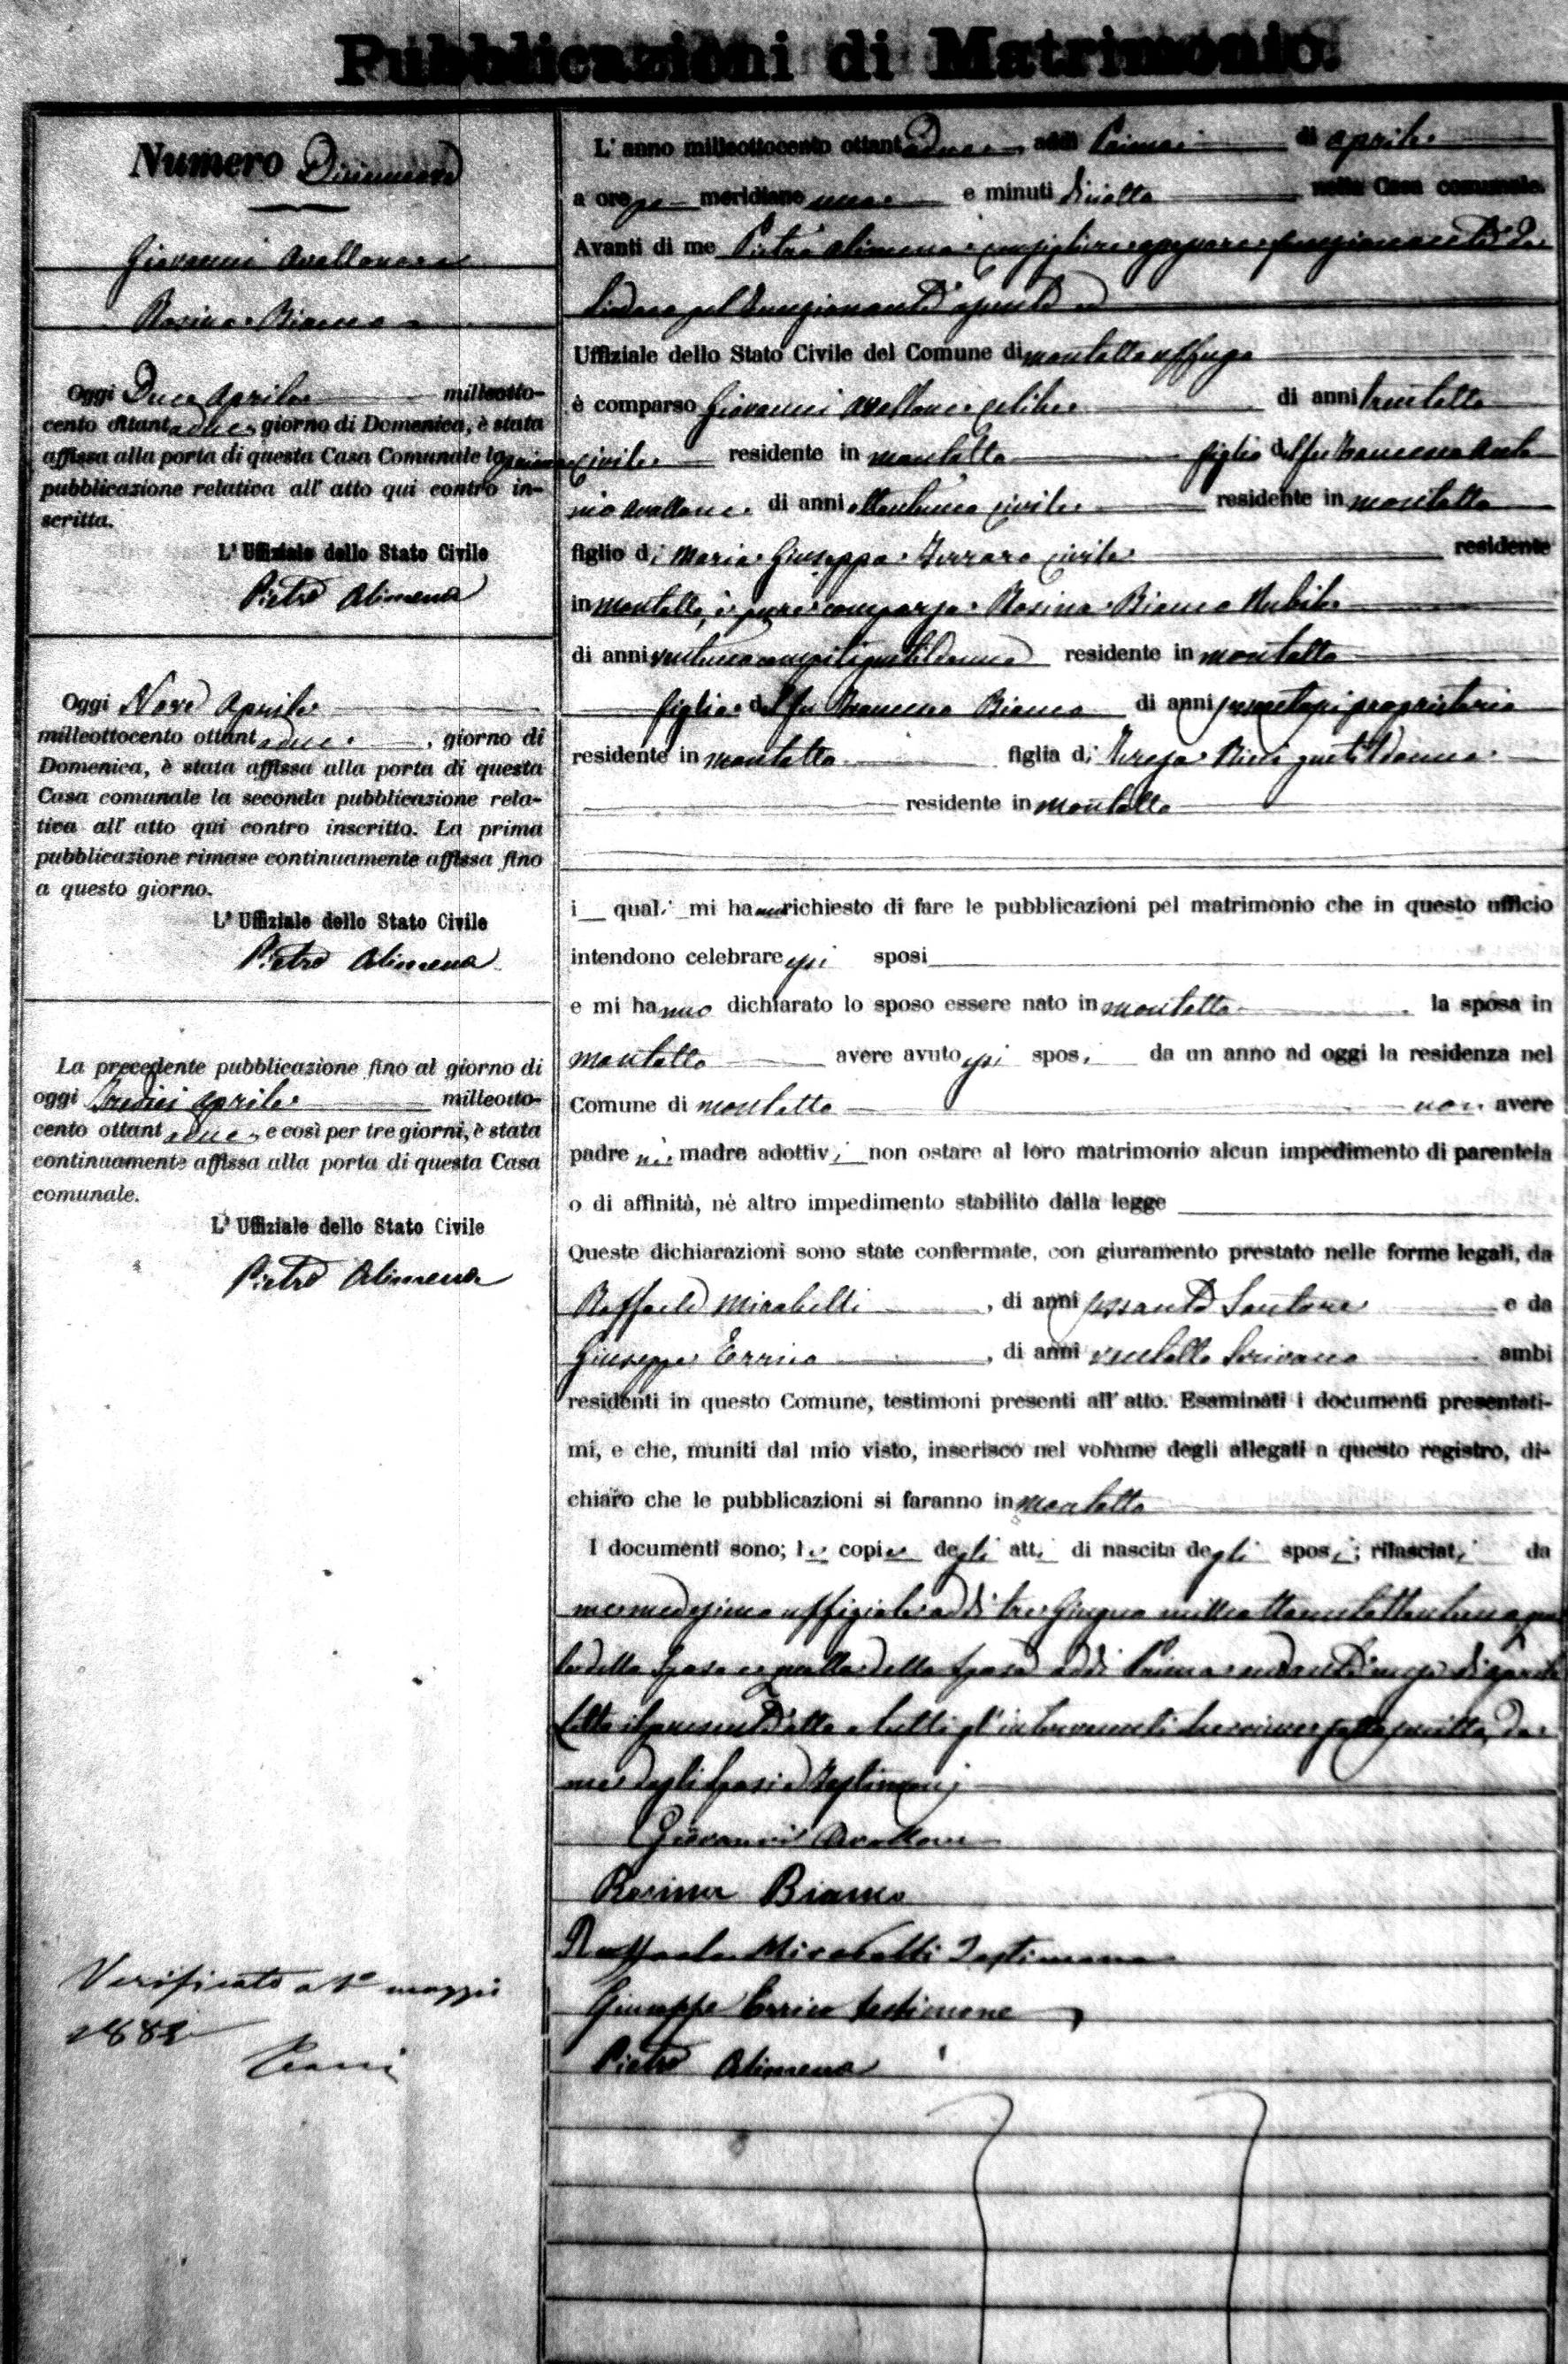 Pubblicazioni di Matrimonio.
Numero Diciannove
Giovanni Avallone e
Rosina Bianco
Oggi Due Aprile milleotto-
cento ottantadue, giorno di Domenica, è stata
affissa alla porta di questa Casa Comunale la prima
pubblicazione relativa all' atto qui contro in-
scritta.
L' Uffiziale dello Stato Civile
Pietro Alimena
Oggi Nove Aprile
milleottocento ottantadue, giorno di
Domenica, è stata affissa alla porta di questa
Casa comunale la seconda pubblicazione rela-
tiva all' atto qui contro inscritto. La prima
pubblicazione rimase continuamente affissa fino
a questo giorno.
L' Uffiziale dello Stato Civile
Pietro Alimena
La precedente pubblicazione fino al giorno di
oggi Tredici Aprile milleotto-
cento ottantadue, e così per tre giorni, è stata
continuamente affissa alla porta di questa Casa
comunale.
L' Uffiziale dello Stato Civile
Pietro Alimena
Verificato a 1° maggio
1882
L' anno milleottocento ottantadue, addì Primo di aprile
a ore po meridiane una e minuti diciotto nella Casa comunale.
Avanti di me Pietro Alimena consigliere funzionante da
Sindaco pel funzionante assente
Uffiziale dello Stato Civile del Comune di montalto uffugo
è comparso Giovanni Avallone celibe di anni trentotto
civile residente in montalto figlio del fu Francesco Anto
nio Avallone di anni ottantuno civile residente in montalto
figlio di Maria Giuseppa Ferraro civile residente
in montalto, è pure comparsa Rosina Bianco Nubile
di anni ventuno compiti gentildonna residente in montalto
figlia del fu Francesco Bianco di anni proprietario
residente in montalto figlia di Teresa Ricci gentildonna
residente in montalto
i quali mi hanno richiesto di fare le pubblicazioni pel matrimonio che in questo ufficio
intendono celebrare essi sposi
e mi hanno dichiarato lo sposo essere nato in montalto la sposa in
montalto avere avuto essi sposi da un anno ad oggi la residenza nel
Comune di montalto non avere
padre nè madre adottivi non ostare al loro matrimonio alcun impedimento di parentela
o di affinità, nè altro impedimento stabilito dalla legge
Queste dichiarazioni sono state confermate, con giuramento prestato nelle forme legali, da
Raffaele Mirabelli, di anni sessanta Sartore e da
Giuseppe Errico, di anni ventotto Scrivano ambi
residenti in questo Comune, testimoni presenti all' atto. Esaminati i documenti presentati-
mi, e che, muniti dal mio visto, inserisco nel volume degli allegati a questo registro, di-
chiaro che le pubblicazioni si faranno in montalto
I documenti sono; le copie degli atti di nascita degli sposi; rilasciati da
me medesimo uffiziale addì tre Giugno milleottocentottantuno quel
lo dello sposo e quello della sposa addì Primo andante mese di aprile
letto il presente atto a tutti gl'intervenuti viene sottoscritto da
me dagli sposi e testimonj
Giovanni Avallone
Rosina Bianco
Raffaele Mirabelli Testimone
Giuseppe Errico testimone
Pietro Alimena